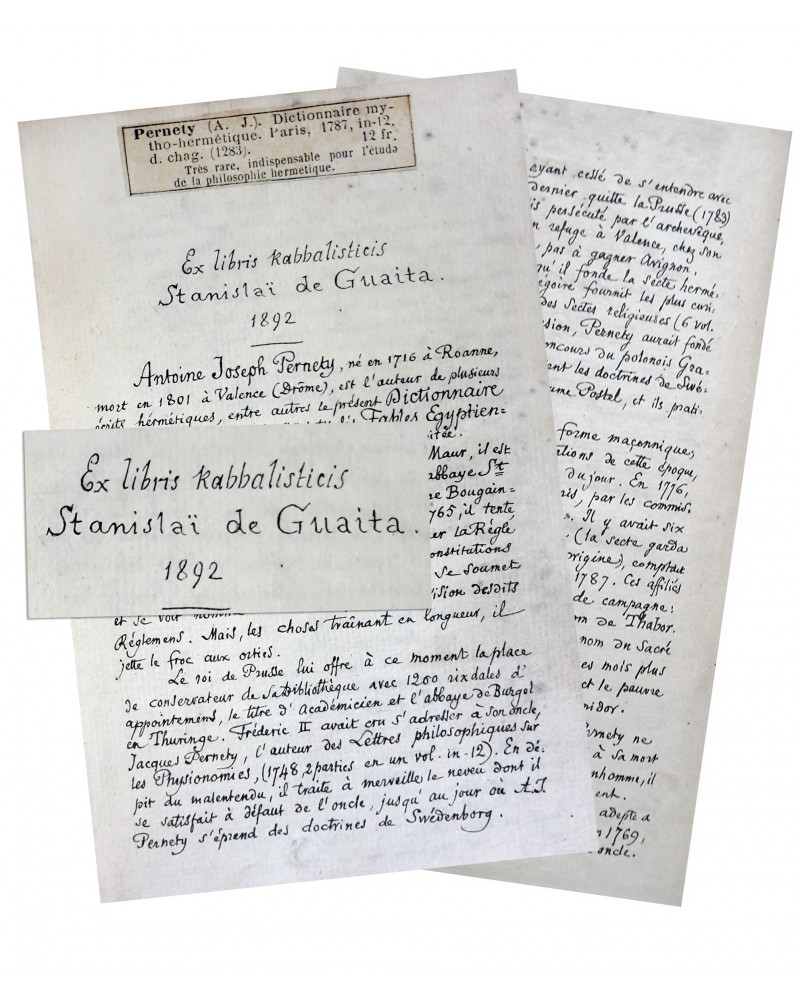 Pernety (A. J.). Dictionnaire my-
tho-hermétique. Paris, 1787, in-12,
d. chag. (1283). 12 fr.
Très rare, indispensable pour l'étude
de la philosophie hermétique.
Ex libris Kabbalisticis
Stanislaï de Guaita.
1892
Antoine Joseph Pernety, né en 1716 à Roanne,
mort en 1801 à Valence (Drôme), est l'auteur de plusieurs
hérmétiques, entre autres le présent Dictionnaire
Fables Egyptien=
Maur, il est
abbaye St
re Bougain=
765, il tente
er La Règle
onstitutions
se soumet
ision desdits
et se voir
Réglemens. Mais, les choses traînant en longueur, il
jette le froc aux orties.
Le roi de Prusse lui offre à ce moment la place
de conservateur de sa Bibliothèque avec 1200 rixdales d'
appointemens, le titre d'Académicien et l'abbaye de Burgel
en Thuringe. Fréderic II avait cru s'adresser à son oncle,
Jacques Pernety, l'auteur des Lettres philosophiques sur
les Physionomies, (1748, 2 parties en un vol. in-12). En dé=
pit du malentendu, il traite à merveille le neveu dont il
se satisfait à défaut de l'oncle, jusqu'au jour où A.J.
Pernety s'éprend des doctrines de Swédenborg.
Ex libris Kabbalisticis
Stanislaï de Guaita.
1892
ayant cessé de s'entendre avec
dernier quitte la Prusse (1783)
is persécuté par l'archevêque,
n refuge à Valence, chez son
pas à gagner Avignon.
qu'il fonde la secte hermé=
égoire fournit les plus curi=
des Sectes religieuses (6 vol.
sion, Pernety aurait fondé
oncours du polonois Gra=
ant les doctrines de Swé=
ume Postel, et ils prati=
forme maçonnique,
tions de cette époque,
du jour. En 1776,
ris, par les commis=
. Il y avait six
(la secte garda
origine), comptait
1787. Ces affiliés
de campagne:
m de Thabor.
nom du Sacré
es mois plus
et le pauvre
midor.
Pernety ne
à sa mort
nhomme, il
ent.
adepte a
en 1769,
oncle.